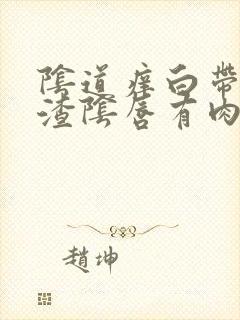 陰道痒白帶
渣陰唇有肉
趙坤